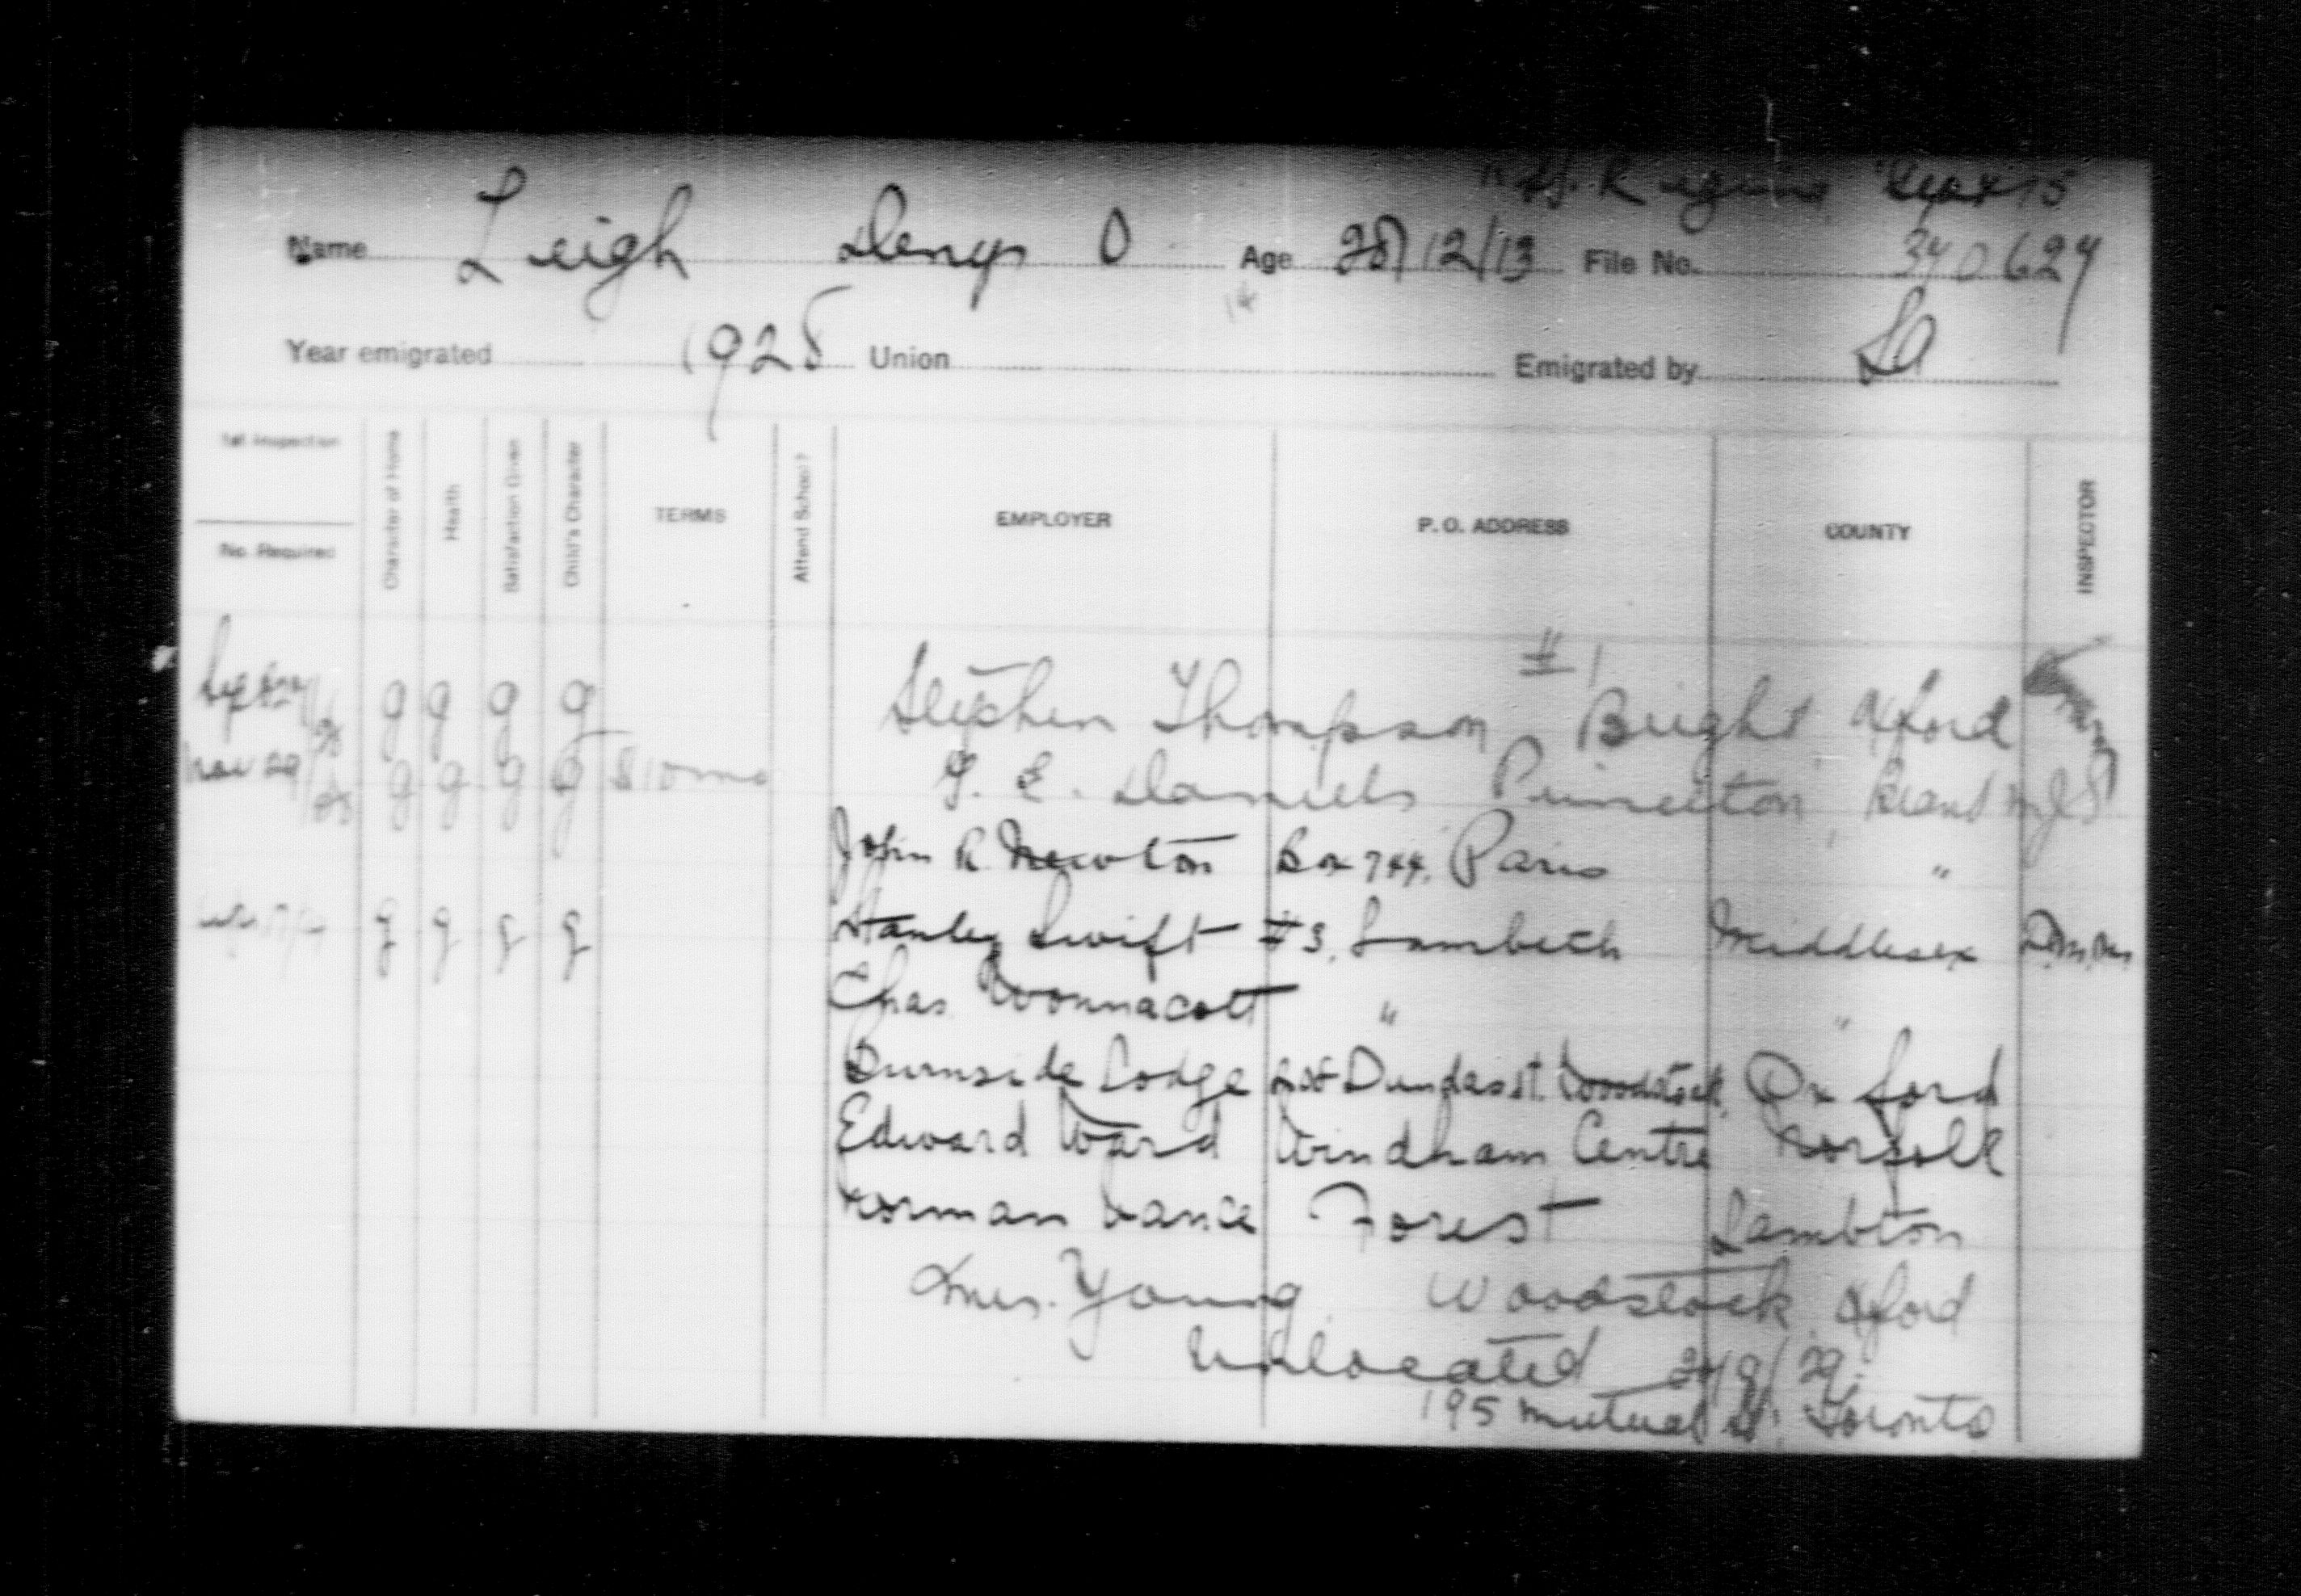 Regina Sept 15
Name Leigh Denys O Age 28/12/13 File No. 340624
14
Year emigrated 1928 Union Emigrated by SA
1st Inspection
No. Required
Character of Home
Health
Satisfaction Given
Child's Character
TERMS
Attend School?
EMPLOYER
P. O. ADDRESS
COUNTY
INSPECTOR
#1
g g g g Stephen Thompson Bright Oxford
Nov 29/28 g g g g $10 mo E. Daniels Princeton Brant
John R. Newton Box 744, Paris "
g g g g Stanley Swift #3, Lambeth Middlesex
Chas. Wonnacott " "
Burnside Lodge Dundas St. Woodstock, Oxford
Edward Ward Windham Centre Norfolk
Norman Vance Forest Lambton
Young Woodstock Oxford
Unlocated 24/9/29.
195 Mutual St. Toronto